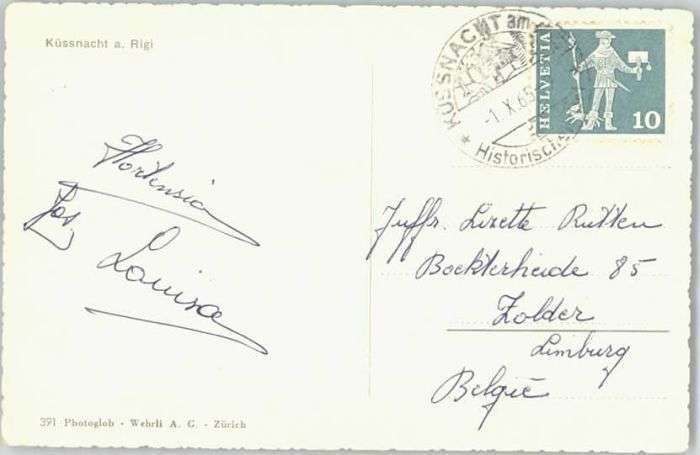 Küssnacht a. Rigi
KÜSSNACHT am
-1.X.65
Historische
HELVETIA
10
Hortensia
Jos,
Louisa
Juffr. Lizette Rutten
Bockterheide 85
Zolder
Limburg
België
391 Photoglob - Wehrli A. G. - Zürich